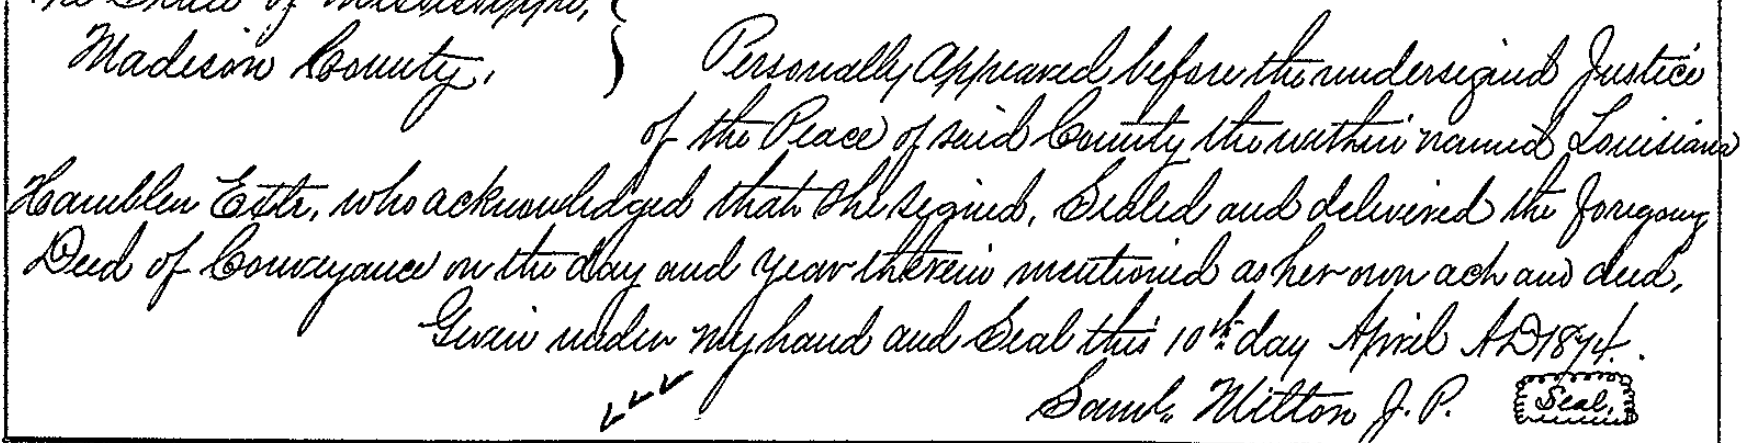 The State of Mississippi,
Madison County, } Personally Appeared before the undersigned Justice
of the Peace of said County the within named Louisiana
Hamblen Extr, who acknowledged that she signed, Sealed and delivered the foregoing
Deed of Conveyance on the day and year therein mentioned as her own act and deed,
Given under my hand and Seal this 10th day April AD 1874.
Saml. Milton J. P. Seal.